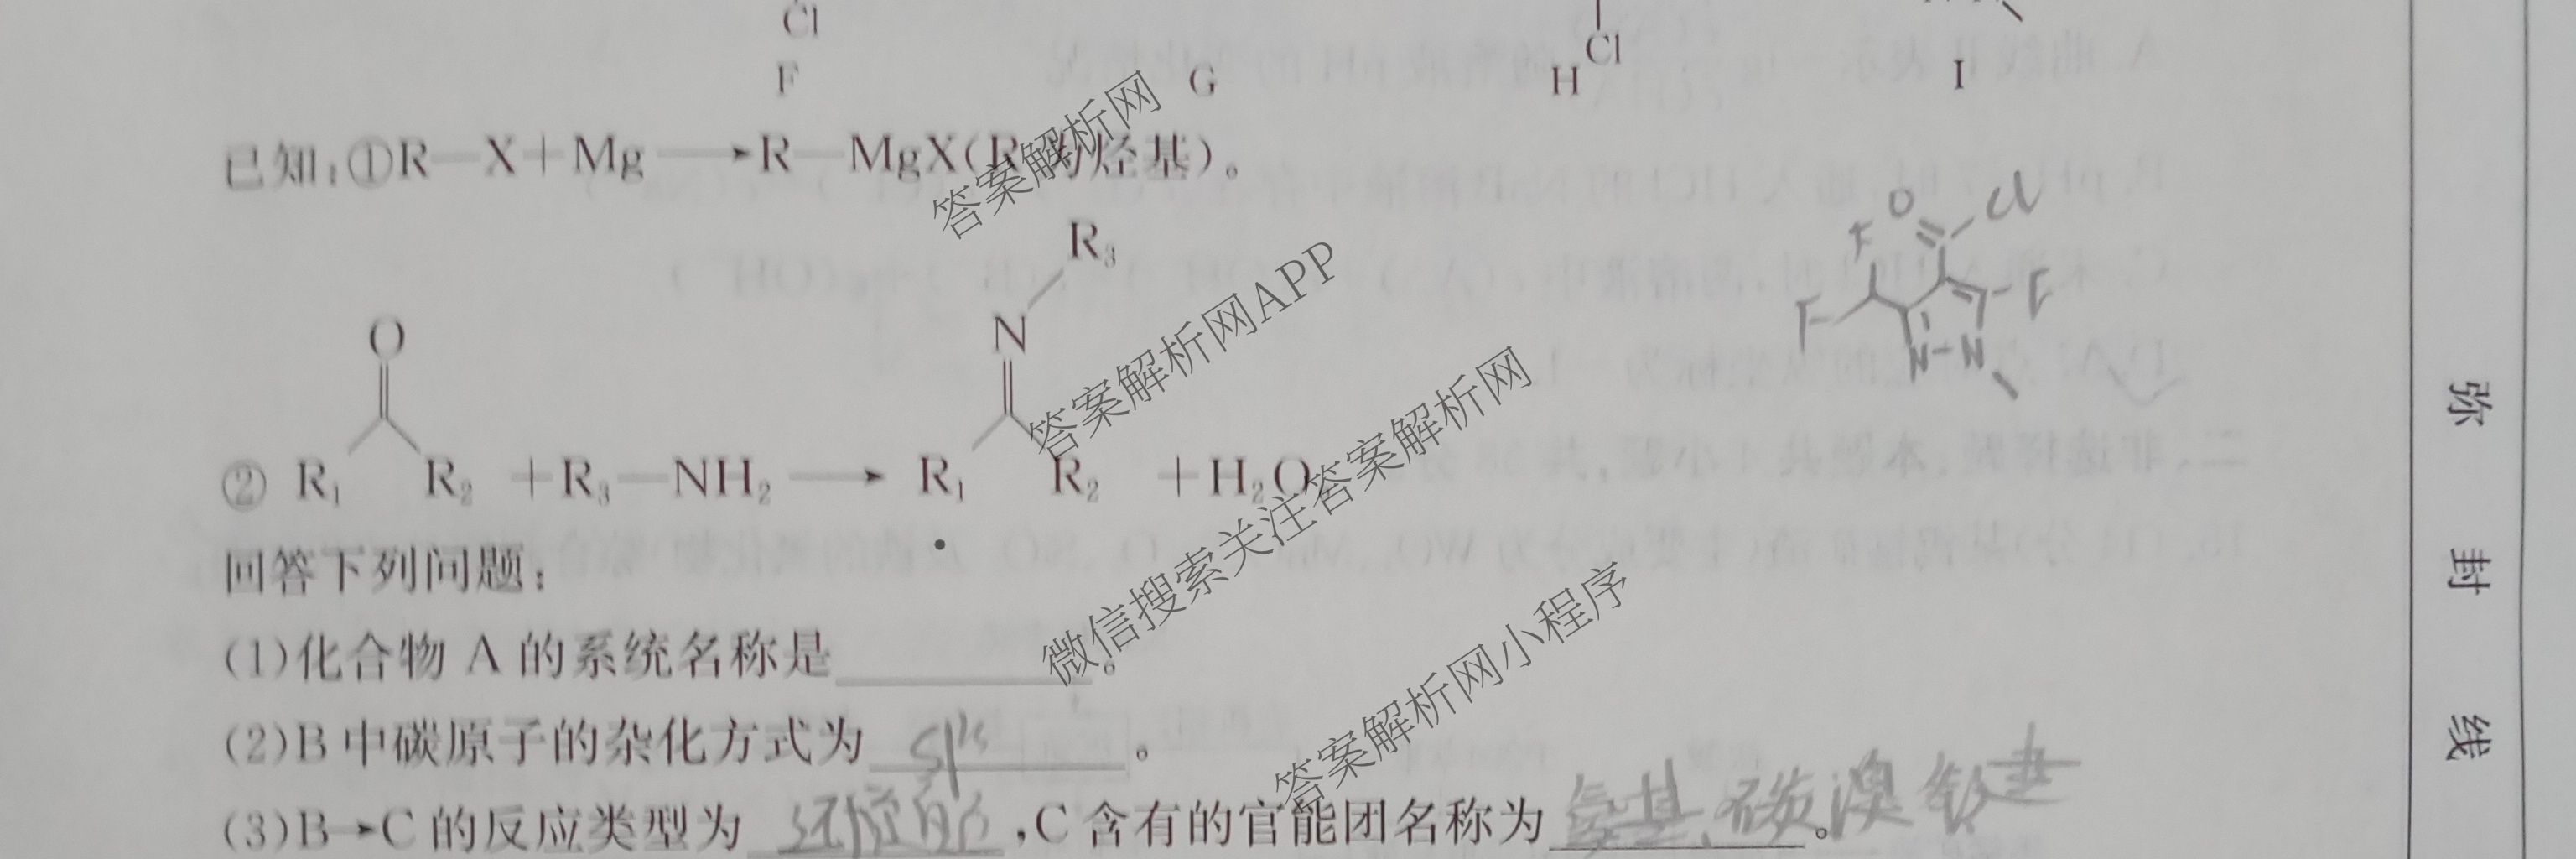 Cl Cl
F G H I
已知:①R—X+Mg→R—MgX(R为烃基)。
O Cl
F F
F N-N
R₃
N
O
② R₁ R₂ +R₃—NH₂→ R₁ R₂ +H₂O
回答下列问题:
(1)化合物 A 的系统名称是________。
(2)B 中碳原子的杂化方式为________。
(3)B→C 的反应类型为 还原反应 ,C 含有的官能团名称为 氨基、碳溴键 。
弥
封
线
答案解析网
答案解析网APP
微信搜索关注答案解析网
答案解析网小程序